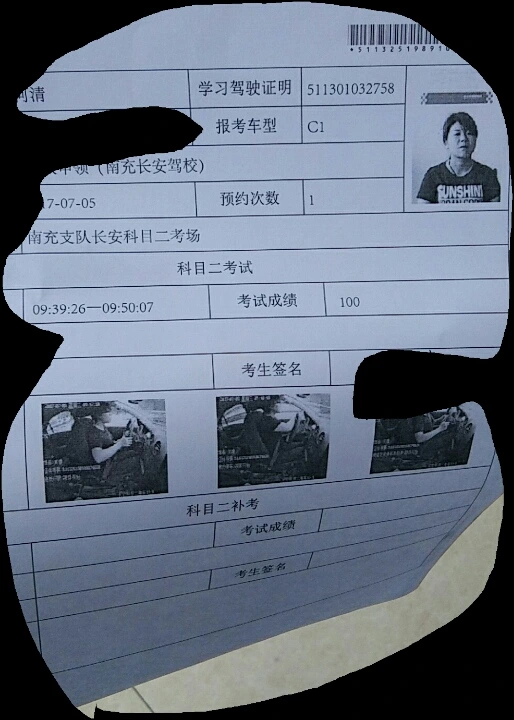 *511325198910
清 学习驾驶证明 511301032758
报考车型 C1
申领（南充长安驾校）
17-07-05 预约次数 1
南充支队长安科目二考场
科目二考试
09:39:26—09:50:07 考试成绩 100
考生签名
科目二补考
考试成绩
考生签名
SUNSHIN